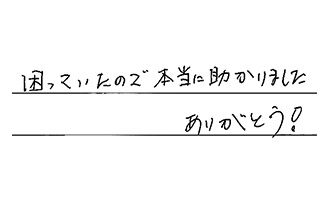 困っていたので本当に助かりました
ありがとう!